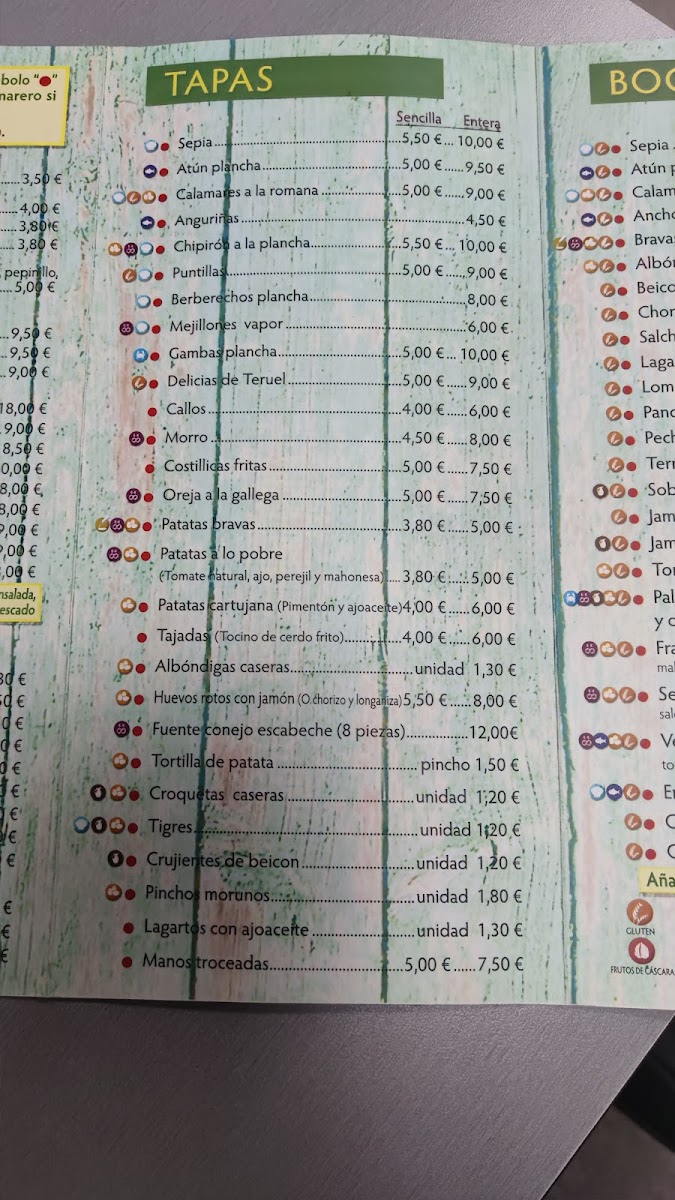 bolo "●"
narero si
TAPAS
Sencilla Entera
Sepia 5,50 € 10,00 €
Atún plancha 5,00 € 9,50 €
Calamares a la romana 5,00 € 9,00 €
Anguriñas 4,50 €
Chipirón a la plancha 5,50 € 10,00 €
Puntillas 5,00 € 9,00 €
Berberechos plancha 8,00 €
Mejillones vapor 6,00 €
Gambas plancha 5,00 € 10,00 €
Delicias de Teruel 5,00 € 9,00 €
Callos 4,00 € 6,00 €
Morro 4,50 € 8,00 €
Costillicas fritas 5,00 € 7,50 €
Oreja a la gallega 5,00 € 7,50 €
Patatas bravas 3,80 € 5,00 €
Patatas a lo pobre
(Tomate natural, ajo, perejil y mahonesa) 3,80 € 5,00 €
Patatas cartujana (Pimentón y ajoaceite) 4,00 € 6,00 €
Tajadas (Tocino de cerdo frito) 4,00 € 6,00 €
Albóndigas caseras unidad 1,30 €
Huevos rotos con jamón (O chorizo y longaniza) 5,50 € 8,00 €
Fuente conejo escabeche (8 piezas) 12,00€
Tortilla de patata pincho 1,50 €
Croquetas caseras unidad 1,20 €
Tigres unidad 1,20 €
Crujientes de beicon unidad 1,20 €
Pinchos morunos unidad 1,80 €
Lagartos con ajoaceite unidad 1,30 €
Manos troceadas 5,00 € 7,50 €
3,50 €
4,00 €
3,80 €
3,80 €
pepinillo,
5,00 €
9,50 €
9,50 €
9,00 €
18,00 €
9,00 €
8,50 €
0,00 €
8,00 €
8,00 €
9,00 €
9,00 €
,00 €
nsalada,
escado
BOC
Sepia
Atún p
Calam
Ancho
Brava
Albón
Beico
Chor
Salch
Laga
Lom
Panc
Pech
Tern
Sob
Jam
Jam
Tor
Pal
y c
Fra
mal
Se
sal
Ve
to
En
C
C
Aña
GLUTEN
FRUTOS DE CÁSCARA